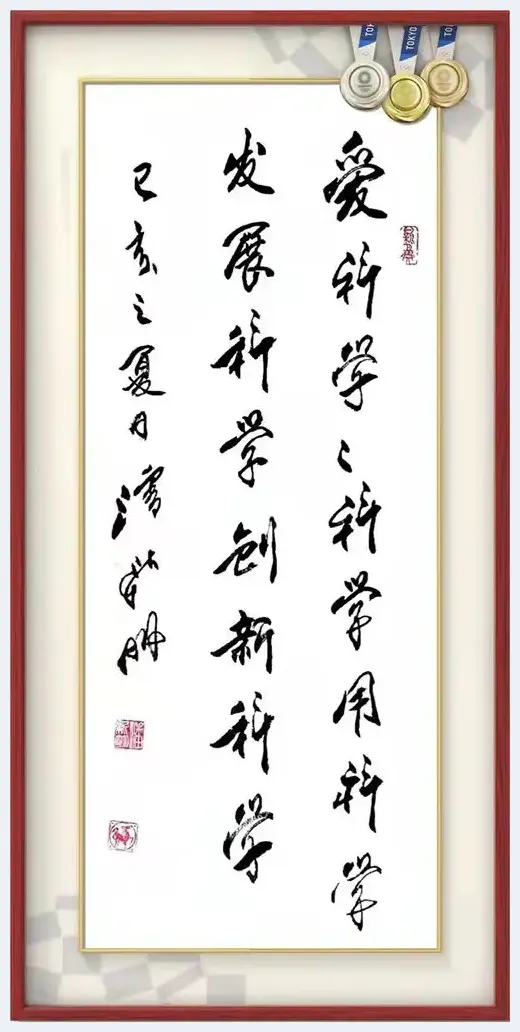 爱科学〻科学用科学
发展科学创新科学
己亥之夏月
TOKYO